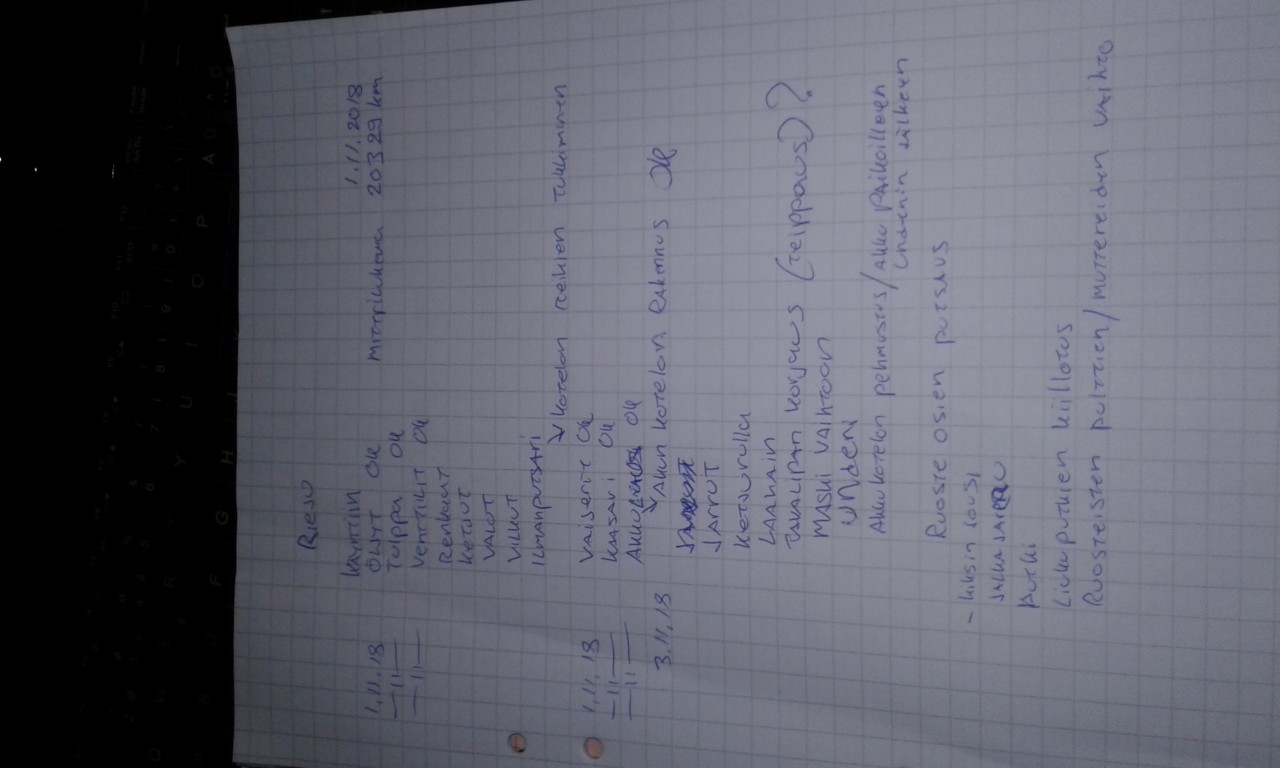 Rieju 1.11.2018
Käyntiin Mittarilukema 20329 km
1.11.18 Öljyt OK
-11- Tulppa OK
-11- Venttiilit OK
Renkaat
Ketjut
Valot
Vilkut
Ilmanputsari
↳ Kotelon reikien tukkiminen
1.11.18 Vaijerit OK
-11- Kaasari OK
-11- Akku OK
3.11.18 ↳ Akun kotelon rakennus OK
Jarrut
Ketjurulla
Laahain
Takalipan korjaus (teippaus)?
Maski vaihtoon
uuden
Akkukotelon pehmustus/akku paikoilleen
Ruoste osien putsaus
- Kiksin
Jalkajarru
Putki
Liukuputkien kiillotus
Ruosteisten pulttien/muttereiden vaihto